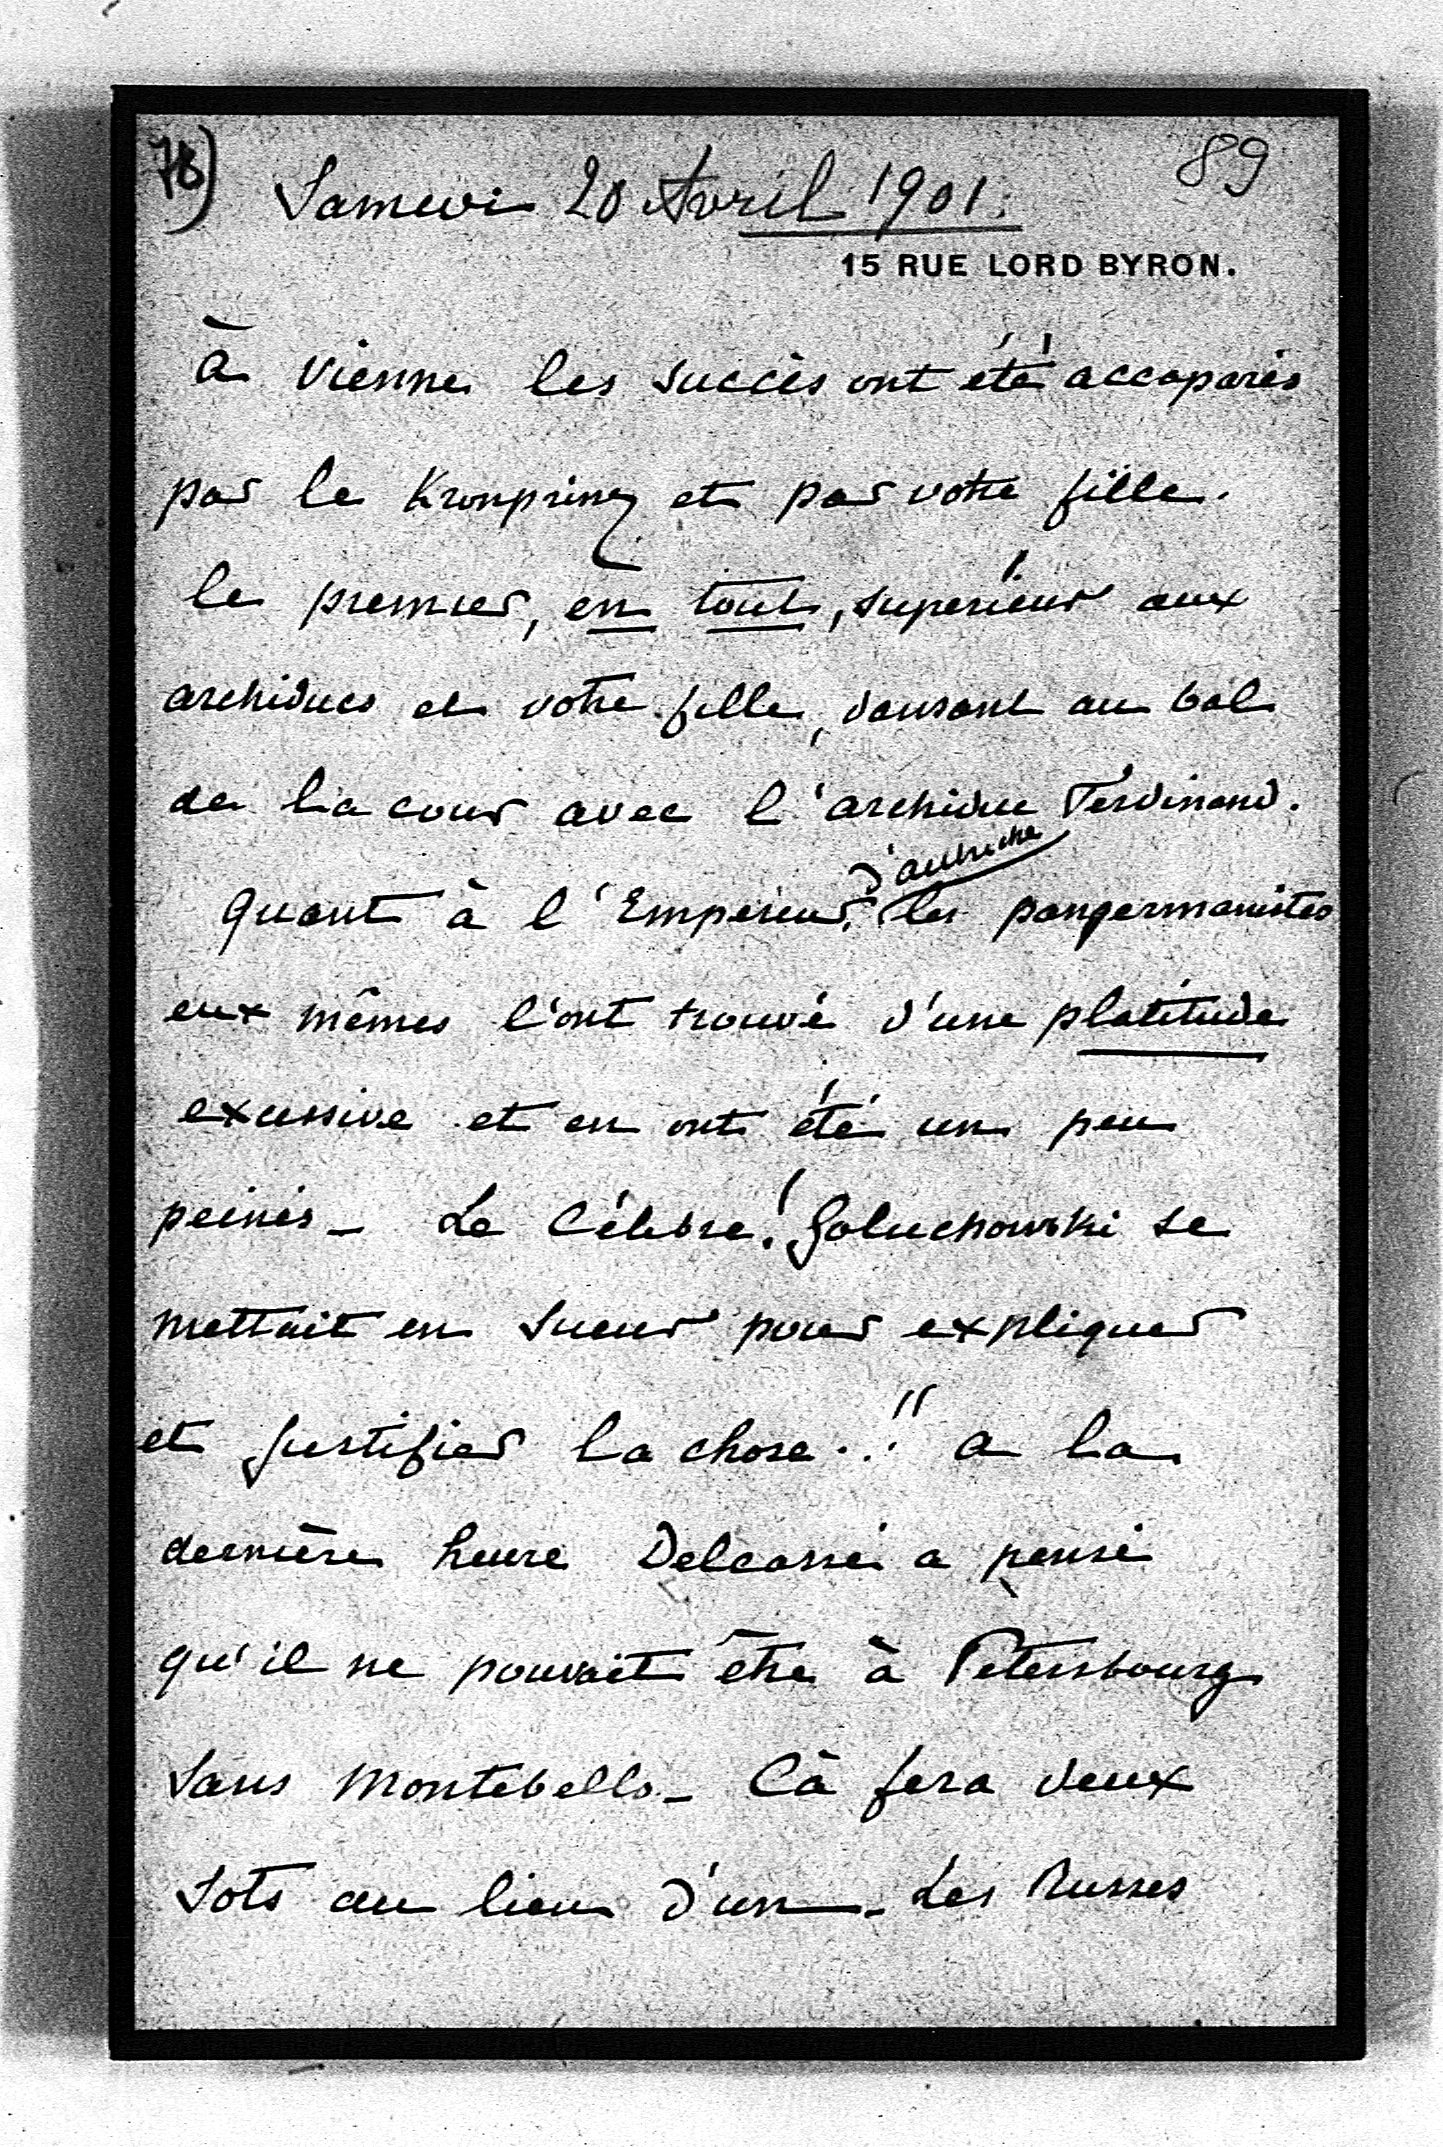 78) 89
Samedi 20 Avril 1901.
15 RUE LORD BYRON.
à Vienne les succès ont été accaparés
par le Kronprinz et par votre fille.
le premier, en tout, supérieur aux
archiducs et votre fille, dansant au bal
de la cour avec l'archiduc Ferdinand.
d'autriche
Quant à l'Empereur, les pangermanistes
eux mêmes l'ont trouvé d'une platitude
excessive et en ont été un peu
peinés _ Le Célèbre! Goluchowski se
mettait en sueur pour expliquer
et justifier la chose .!! a la
dernière heure Delcassé a pensé
qu'il ne pouvait être à Pétersbourg
sans Montebello _ Cà fera deux
sots au lieu d'un _ Les Russes